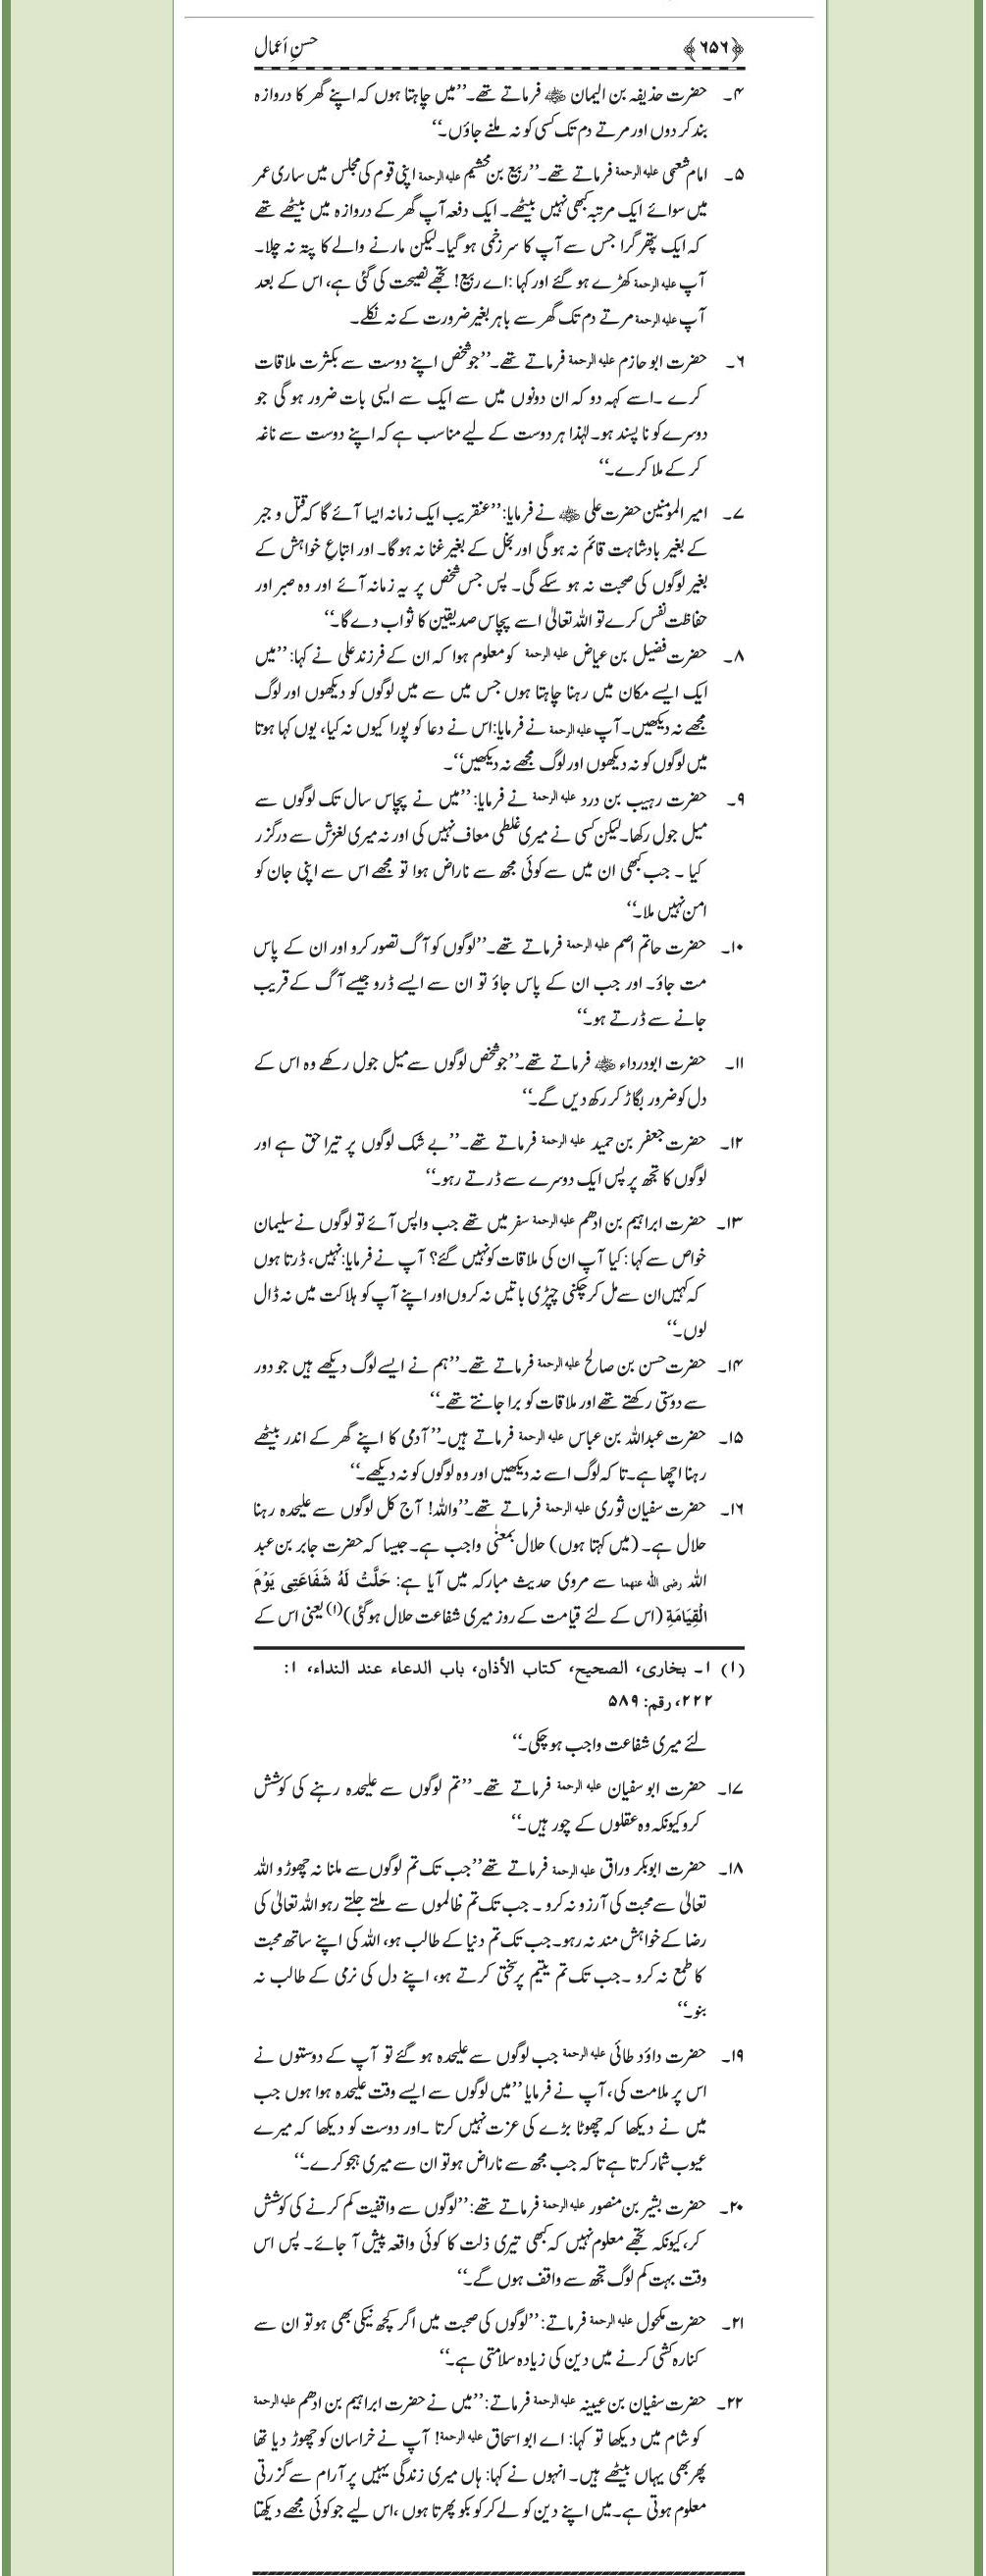 ﴿۶۵۶﴾ حسنِ اَعمال
۴۔ حضرت حذیفہ بن الیمان ﷺ فرماتے تھے۔’’میں چاہتا ہوں کہ اپنے گھر کا دروازہ
بند کر دوں اور مرتے دم تک کسی کو نہ ملنے جاؤں۔‘‘
۵۔ امام شعبی علیہ الرحمۃ فرماتے تھے۔’’ربیع بن خُثیم علیہ الرحمۃ اپنی قوم کی مجلس میں ساری عمر
میں سوائے ایک مرتبہ کبھی نہیں بیٹھے۔ ایک دفعہ آپ گھر کے دروازہ میں بیٹھے تھے
کہ ایک پتھر گرا جس سے آپ کا سر زخمی ہو گیا۔لیکن مارنے والے کا پتہ نہ چلا۔
آپ علیہ الرحمۃ کھڑے ہو گئے اور کہا :اے ربیع! تجھے نصیحت کی گئی ہے، اس کے بعد
آپ علیہ الرحمۃ مرتے دم تک گھر سے باہر بغیر ضرورت کے نہ نکلے۔
۶۔ حضرت ابو حازم علیہ الرحمۃ فرماتے تھے۔’’جو شخص اپنے دوست سے بکثرت ملاقات
کرے ۔اسے کہہ دو کہ ان دونوں میں سے ایک سے ایسی بات ضرور ہو گی جو
دوسرے کو نا پسند ہو۔ لہٰذا ہر دوست کے لیے مناسب ہے کہ اپنے دوست سے ناغہ
کر کے ملا کرے۔‘‘
۷۔ امیر المومنین حضرت علی ﷺ نے فرمایا:’’عنقریب ایک زمانہ ایسا آئے گا کہ قتل و جبر
کے بغیر بادشاہت قائم نہ ہو گی اور بخل کے بغیر غنا نہ ہو گا۔ اور اتباعِ خواہش کے
بغیر لوگوں کی صحبت نہ ہو سکے گی۔ پس جس شخص پر یہ زمانہ آئے اور وہ صبر اور
حفاظت نفس کرے تو اللہ تعالیٰ اسے پچاس صدیقین کا ثواب دے گا۔‘‘
۸۔ حضرت فضیل بن عیاض علیہ الرحمۃ کو معلوم ہوا کہ ان کے فرزند علی نے کہا:’’میں
ایک ایسے مکان میں رہنا چاہتا ہوں جس میں سے میں لوگوں کو دیکھوں اور لوگ
مجھے نہ دیکھیں۔ آپ علیہ الرحمۃ نے فرمایا:اس نے دعا کو پورا کیوں نہ کیا، یوں کہا ہوتا
میں لوگوں کو نہ دیکھوں اور لوگ مجھے نہ دیکھیں‘‘۔
۹۔ حضرت رہیب بن درد علیہ الرحمۃ نے فرمایا:’’میں نے پچاس سال تک لوگوں سے
میل جول رکھا۔لیکن کسی نے میری غلطی معاف نہیں کی اور نہ میری لغزش سے درگزر
کیا ۔ جب کبھی ان میں سے کوئی مجھ سے ناراض ہوا تو مجھے اس سے اپنی جان کو
امن نہیں ملا۔‘‘
۱۰۔ حضرت حاتم اصم علیہ الرحمۃ فرماتے تھے۔’’لوگوں کو آگ تصور کرو اور ان کے پاس
مت جاؤ۔ اور جب ان کے پاس جاؤ تو ان سے ایسے ڈرو جیسے آگ کے قریب
جانے سے ڈرتے ہو۔‘‘
۱۱۔ حضرت ابودرداء ﷺ فرماتے تھے۔’’جو شخص لوگوں سے میل جول رکھے وہ اس کے
دل کو ضرور بگاڑ کر رکھ دیں گے۔‘‘
۱۲۔ حضرت جعفر بن حمید علیہ الرحمۃ فرماتے تھے۔’’بے شک لوگوں پر تیرا حق ہے اور
لوگوں کا تجھ پر پس ایک دوسرے سے ڈرتے رہو۔‘‘
۱۳۔ حضرت ابراہیم بن ادھم علیہ الرحمۃ سفر میں تھے جب واپس آئے تو لوگوں نے سلیمان
خواص سے کہا :کیا آپ ان کی ملاقات کو نہیں گئے؟ آپ نے فرمایا:نہیں، ڈرتا ہوں
کہ کہیں ان سے مل کر چکنی چپڑی باتیں نہ کروں اور اپنے آپ کو ہلاکت میں نہ ڈال
لوں۔‘‘
۱۴۔ حضرت حسن بن صالح علیہ الرحمۃ فرماتے تھے۔’’ہم نے ایسے لوگ دیکھے ہیں جو دور
سے دوستی رکھتے تھے اور ملاقات کو برا جانتے تھے۔‘‘
۱۵۔ حضرت عبداللہ بن عباس علیہ الرحمۃ فرماتے ہیں۔’’آدمی کا اپنے گھر کے اندر بیٹھے
رہنا اچھا ہے۔تا کہ لوگ اسے نہ دیکھیں اور وہ لوگوں کو نہ دیکھے۔‘‘
۱۶۔ حضرت سفیان ثوری علیہ الرحمۃ فرماتے تھے۔’’واللہ! آج کل لوگوں سے علیحدہ رہنا
حلال ہے۔ (میں کہتا ہوں) حلال بمعنٰی واجب ہے۔جیسا کہ حضرت جابر بن عبد
اللہ رضی اللہ عنھما سے مروی حدیث مبارکہ میں آیا ہے: حَلَّتْ لَهُ شَفَاعَتِی يَوْمَ
الْقِيَامَةِ (اس کے لئے قیامت کے روز میری شفاعت حلال ہوگئی)(۱) یعنی اس کے
(۱) ۱۔ بخاری، الصحیح، کتاب الأذان، باب الدعاء عند النداء، ۱:
۲۲۲، رقم: ۵۸۹
لئے میری شفاعت واجب ہو چکی۔‘‘
۱۷۔ حضرت ابو سفیان علیہ الرحمۃ فرماتے تھے۔’’تم لوگوں سے علیحدہ رہنے کی کوشش
کرو کیونکہ وہ عقلوں کے چور ہیں۔‘‘
۱۸۔ حضرت ابوبکر وراق علیہ الرحمۃ فرماتے تھے’’جب تک تم لوگوں سے ملنا نہ چھوڑو اللہ
تعالیٰ سے محبت کی آرزو نہ کرو ۔ جب تک تم ظالموں سے ملتے جلتے رہو اللہ تعالیٰ کی
رضا کے خواہش مند نہ رہو۔جب تک تم دنیا کے طالب ہو، اللہ کی اپنے ساتھ محبت
کا طمع نہ کرو ۔جب تک تم یتیم پر سختی کرتے ہو، اپنے دل کی نرمی کے طالب نہ
بنو۔‘‘
۱۹۔ حضرت داؤد طائی علیہ الرحمۃ جب لوگوں سے علیحدہ ہو گئے تو آپ کے دوستوں نے
اس پر ملامت کی، آپ نے فرمایا ’’میں لوگوں سے ایسے وقت علیحدہ ہوا ہوں جب
میں نے دیکھا کہ چھوٹا بڑے کی عزت نہیں کرتا ۔اور دوست کو دیکھا کہ میرے
عیوب شمار کرتا ہے تا کہ جب مجھ سے ناراض ہو تو ان سے میری ہجو کرے۔‘‘
۲۰۔ حضرت بشیر بن منصور علیہ الرحمۃ فرماتے تھے:’’لوگوں سے واقفیت کم کرنے کی کوشش
کر، کیونکہ تجھے معلوم نہیں کہ کبھی تیری ذلت کا کوئی واقعہ پیش آ جائے۔ پس اس
وقت بہت کم لوگ تجھ سے واقف ہوں گے۔‘‘
۲۱۔ حضرت مکحول علیہ الرحمۃ فرماتے:’’لوگوں کی صحبت میں اگر کچھ نیکی بھی ہو تو ان سے
کنارہ کشی کرنے میں دین کی زیادہ سلامتی ہے۔‘‘
۲۲۔ حضرت سفیان بن عیینہ علیہ الرحمۃ فرماتے:’’میں نے حضرت ابراہیم بن ادھم علیہ الرحمۃ
کو شام میں دیکھا تو کہا: اے ابو اسحاق علیہ الرحمۃ! آپ نے خراسان کو چھوڑ دیا تھا
پھر بھی یہاں بیٹھے ہیں۔ انہوں نے کہا: ہاں میری زندگی یہیں پر آرام سے گزرتی
معلوم ہوتی ہے۔میں اپنے دین کو لے کر کو بکو پھرتا ہوں ،اس لیے جو کوئی مجھے دیکھتا